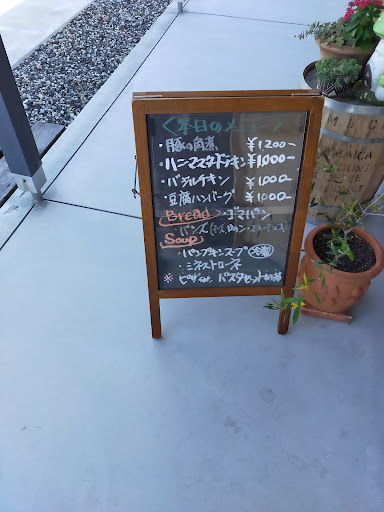 <本日のメニュー>
・豚の角煮 ¥1200-
・ハニーマスタードチキン ¥1,000-
・バジルチキン ¥1,000-
・豆腐ハンバーグ ¥1,000-
Bread ・ゴマパン
・バンズ
Soup
・パンプキンスープ
・ミネストローネ
※ピザ パスタセット
JAMAICA